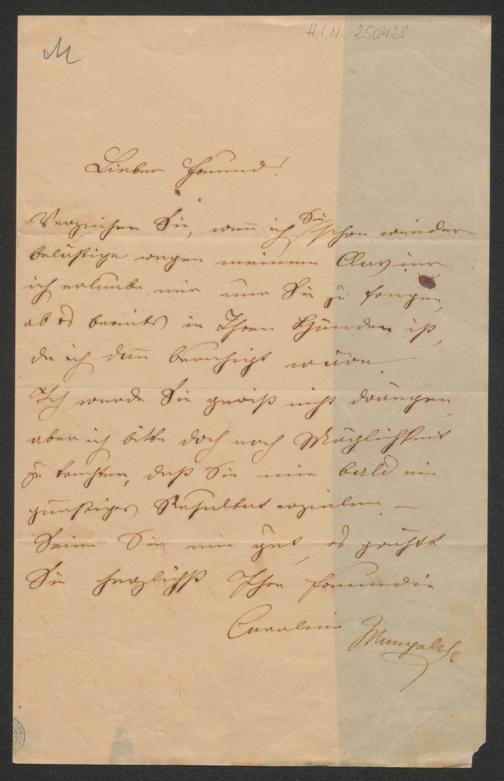 M
H.I.N. 250428
Lieber Freund!
Verzeihen Sie, wenn ich Sie schon wieder
belästige wegen meinem Clavier
ich erlaube mir nur Sie zu fragen,
ob es bereits in Ihren Händen ist,
da ich dann beruhigt wäre.
Ich werde Sie gewiß nicht drängen,
aber ich bitte doch nach Möglichkeit
zu trachten, daß Sie mir bald ein
günstiges Resultat erzielen. –
Seien Sie mir gut, es grüßt
Sie herzlichst Ihre Freundin
Caroline